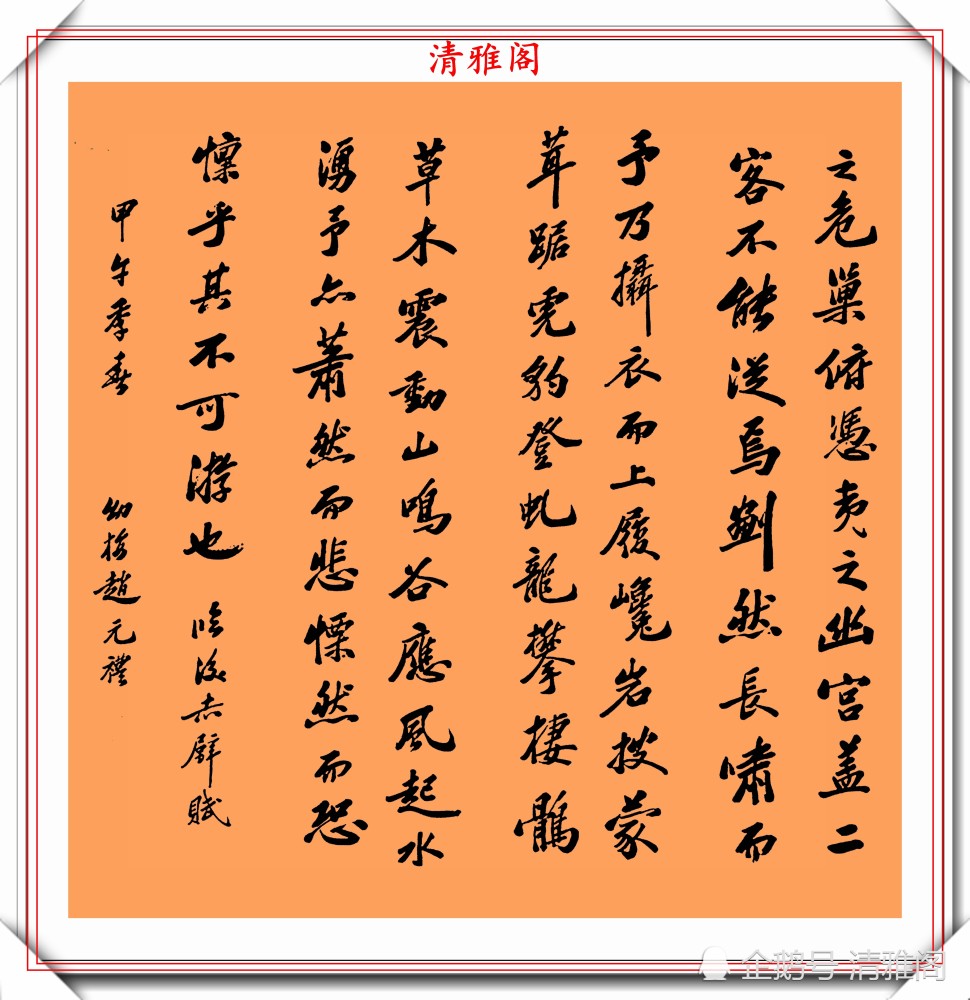 清雅阁
之危巢俯憑夷之幽宮盖二
客不能從焉劃然長嘯而
予乃攝衣而上履巉岩披蒙
茸踞虎豹登虬龍攀棲鶻
草木震動山鳴谷應風起水
湧予亦蕭然而悲慄然而恐
懍乎其不可游也 臨後赤壁賦
甲午季春 幼梅趙元禮
企鹅号 清雅阁